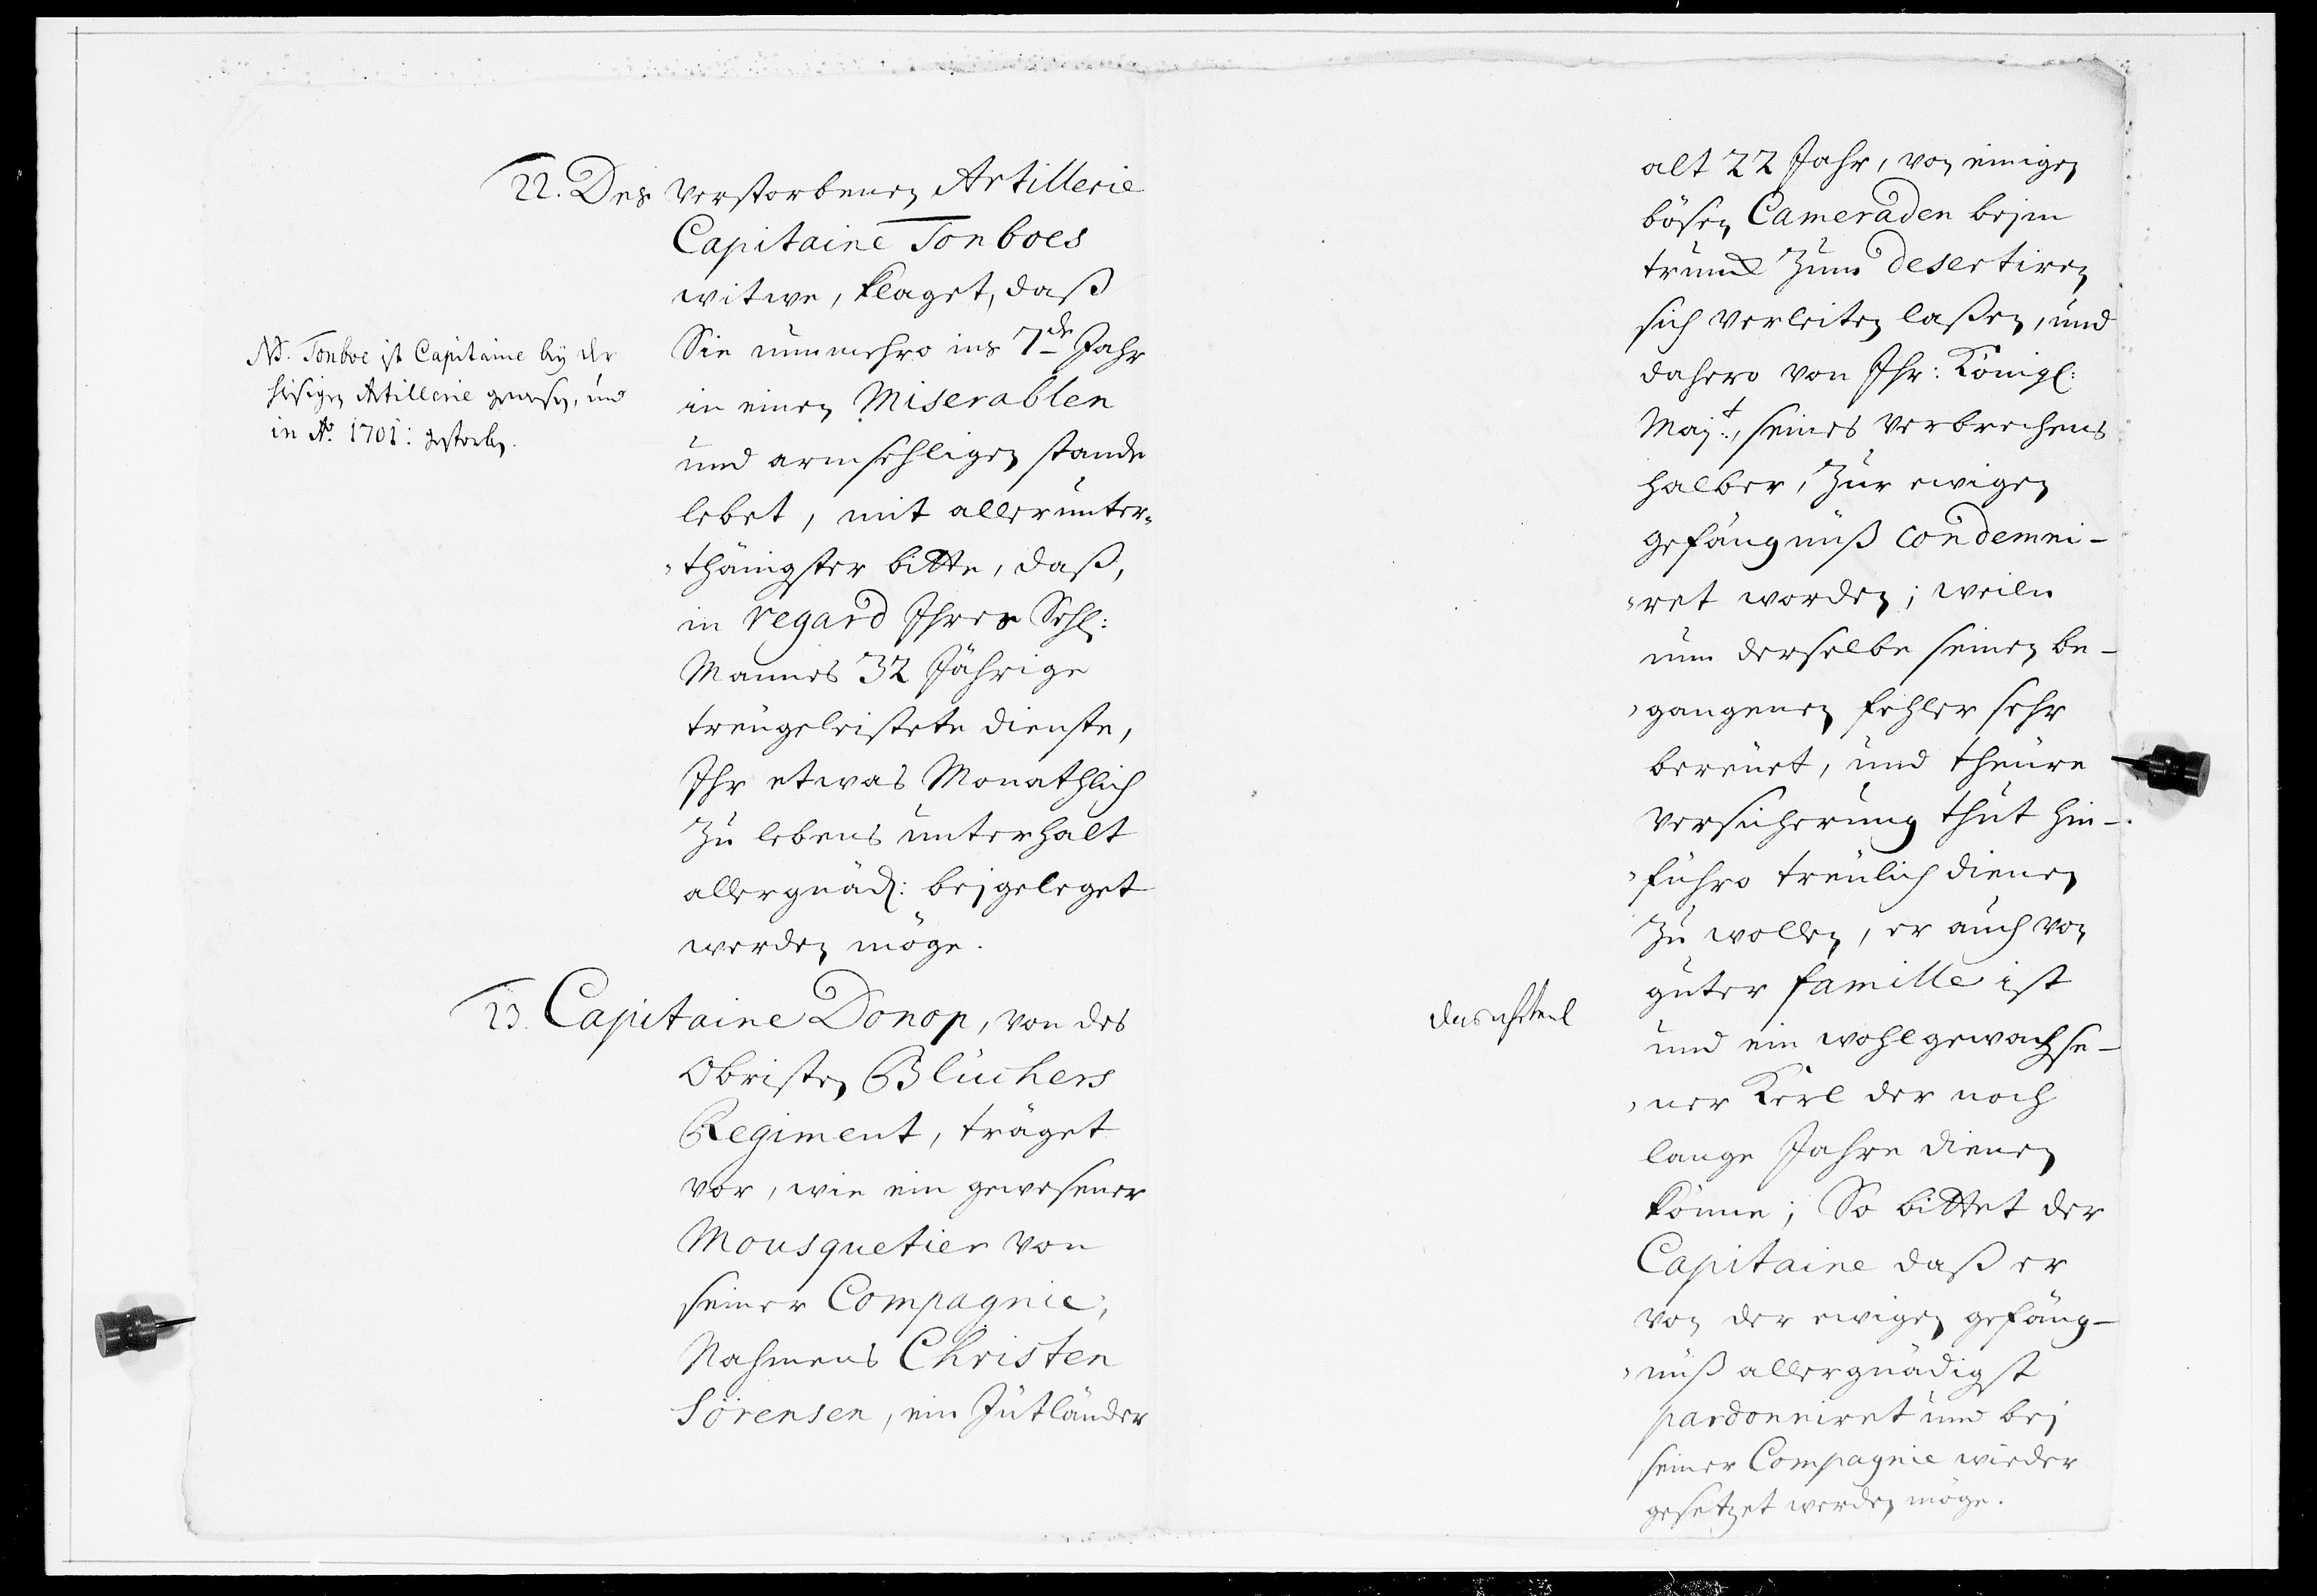 22. Des verstorbenen Artillerie
Capitaine Tonboes
witwe, klaget, daß
Sie nunmehro ins 7de Jahr
in einen Miserablen
und armsehligen stande
lebet, mit allerunter-
thänigster bitte, daß,
in regard Ihres Sehl:
Mannes 32 Jährige
treugeleistete dienste,
Ihr etwas Monathlich
zu lebens unterhalt
allergnäd: beygeleget
werden möge.
NB. Tonboe ist Capitaine bey der
hiesigen Artillerie gewesen, und
in Ao. 1701: gestorben.
23. Capitaine Donop, von des
Obristen Blüchers
Regiment, träget
vor, wie ein gewesener
Mousquetier von
seiner Compagnie,
Nahmens Christen
Sörensen, ein Jütländer
alt 22 Jahr, von einigen
bösen Cameraden beym
trunck zum desertiren
sich verleiten laßen, und
dahero von Ihr: Königl:
Maj:t, seines verbrechens
halber, zur ewigen
gefängnüß condemni-
ret worden; weiln
nun derselbe seinen be-
gangenen fehler sehr
bereuet, und theure
versicherung thut hin-
führo treulich dienen
zu wollen, er auch von
guter famille ist
und ein wohlgewachse-
ner Kerl der noch
lange Jahre dienen
könne; So bittet der
Capitaine daß er
von der ewigen gefäng-
nüß allergnädigst
pardonniret und bey
seiner Compagnie wieder
gesetzet werden möge.